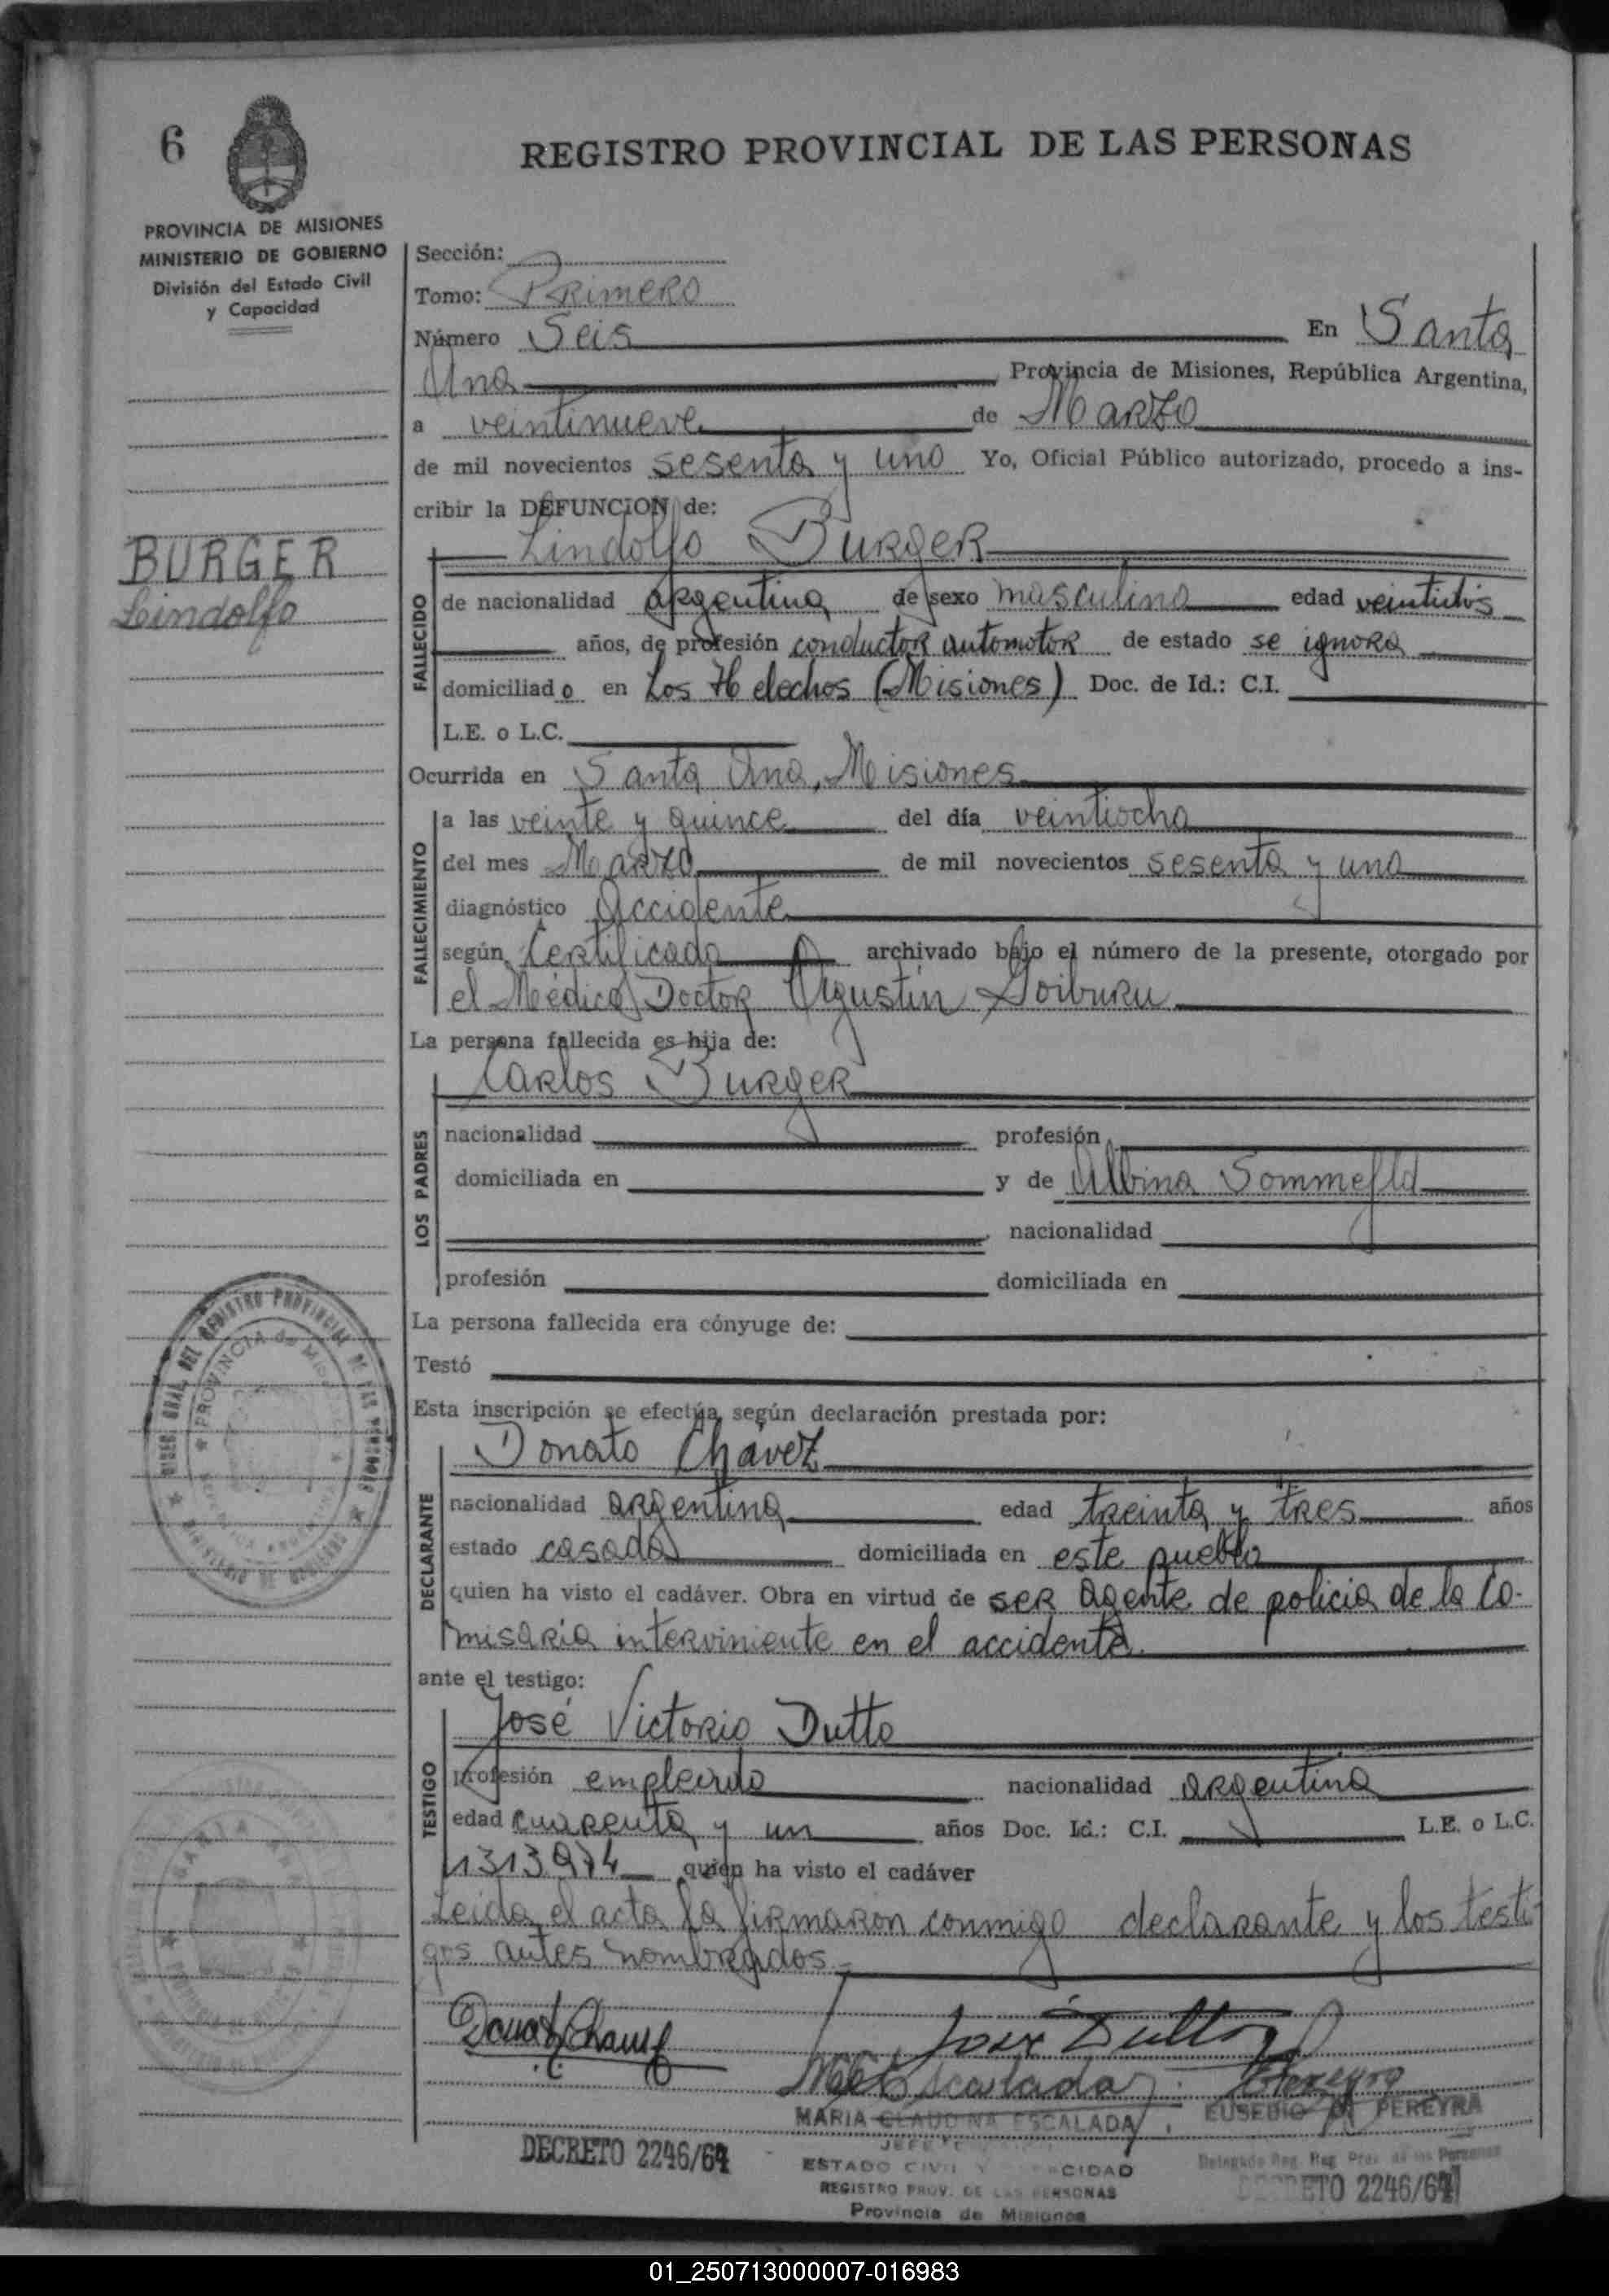 6
REGISTRO PROVINCIAL DE LAS PERSONAS
PROVINCIA DE MISIONES
MINISTERIO DE GOBIERNO
División del Estado Civil
y Capacidad
BURGER
Lindolfo
Sección:
Tomo: PRimeRo
Número Seis En Santa
Ana Provincia de Misiones, República Argentina,
a veintinueve de MaRzo
de mil novecientos sesenta y uno Yo, Oficial Público autorizado, procedo a ins-
cribir la DEFUNCION de:
Lindolfo BURgeR
FALLECIDO
de nacionalidad aRgentina de sexo masculino edad veintidós
años, de profesión conductoR automotoR de estado se ignoRa
domiciliado en Los Helechos (Misiones) Doc. de Id.: C.I.
L.E. o L.C.
Ocurrida en Santa Ana, Misiones
FALLECIMIENTO
a las veinte y quince del día veintiocho
del mes MaRzo de mil novecientos sesenta y uno
diagnóstico Accidente
según Certificado archivado bajo el número de la presente, otorgado por
el Médico Doctor Agustín Goiburu
La persona fallecida es hija de:
Carlos BURgeR
LOS PADRES
nacionalidad profesión
domiciliada en y de Albina Sommefld
nacionalidad
profesión domiciliada en
La persona fallecida era cónyuge de:
Testó
Esta inscripción se efectúa según declaración prestada por:
Donato Chávez
DECLARANTE
nacionalidad aRgentina edad treinta y tRes años
estado casado domiciliada en este pueblo
quien ha visto el cadáver. Obra en virtud de seR agente de policía de la Co-
misaRía interviniente en el accidente.
ante el testigo:
José Victorio Dutto
TESTIGO
profesión empleado nacionalidad aRgentina
edad cuaRenta y un años Doc. Id.: C.I. L.E. o L.C.
1313974 quien ha visto el cadáver
Leída el acta la fiRmaRon conmigo declaRante y los testi-
gos antes nombRados.-
Donato Chavez José Dutto
MCEscalada Pereyra
MARIA CLAUDINA ESCALADA EUSEBIO PEREYRA
DECRETO 2246/64
ESTADO CIVIL Y CAPACIDAD
REGISTRO PROV. DE LAS PERSONAS
Provincia de Misiones
Delegado Reg. Prov. de las Personas
DECRETO 2246/64
01_250713000007-016983